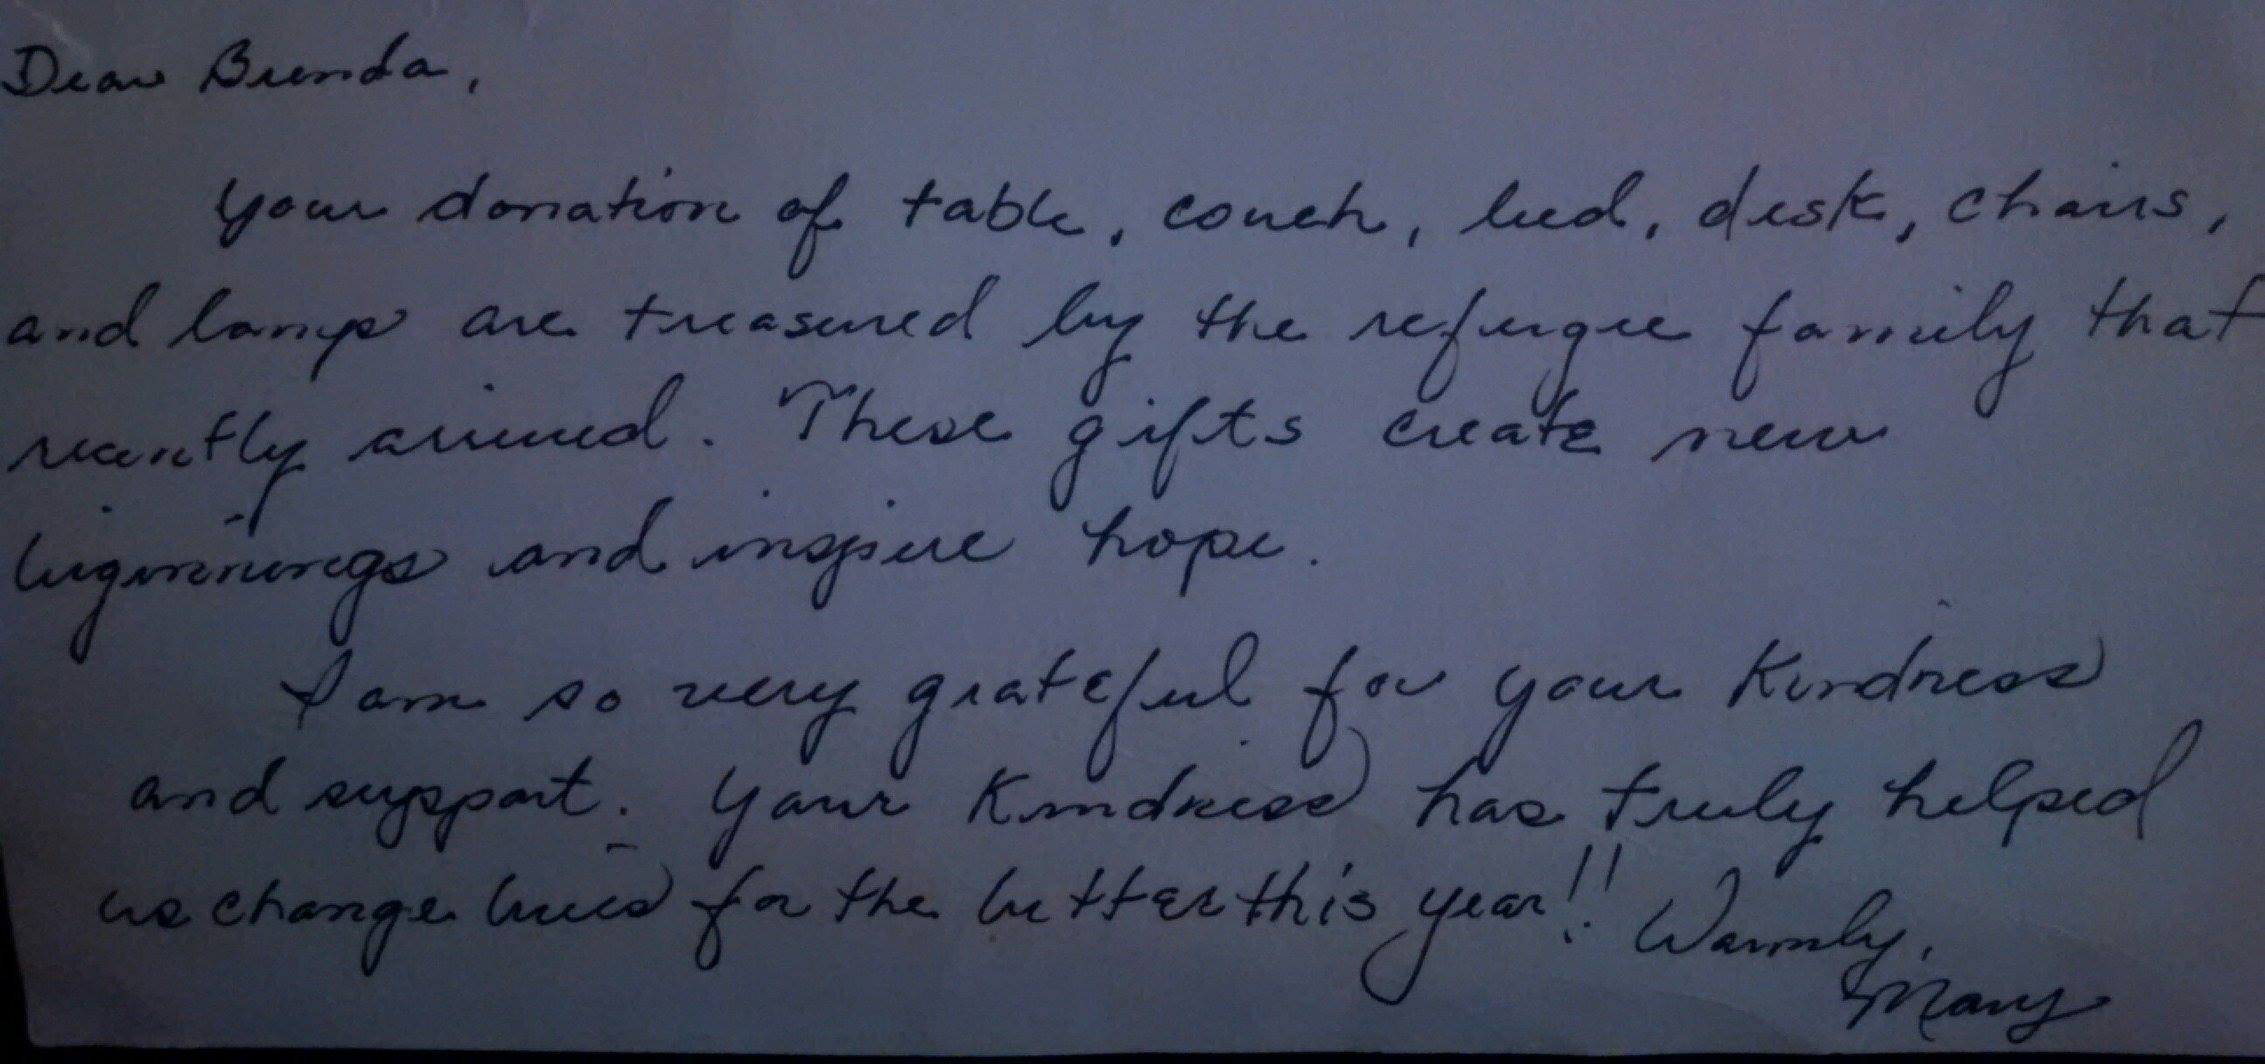 Dear Brenda,
Your donation of table, couch, bed, desk, chairs,
and lamp are treasured by the refugee family that
recently arrived. These gifts create new
beginnings and inspire hope.
I am so very grateful for your kindness
and support. Your kindness has truly helped
us change lives for the better this year!! Warmly,
Mary